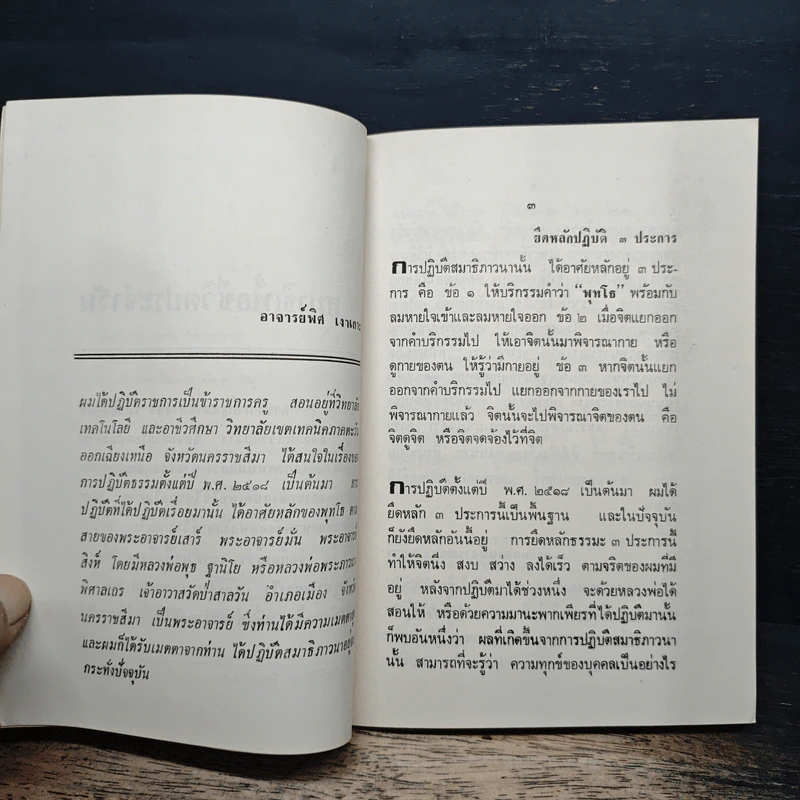 อาจารย์พิศ เงาเกาะ
ผมได้ปฏิบัติราชการเป็นข้าราชการครู สอนอยู่ที่วิทยาลัย
เทคโนโลยี และอาชีวศึกษา วิทยาลัยเขตเทคนิคภาคตะวัน
ออกเฉียงเหนือ จังหวัดนครราชสีมา ได้สนใจในเรื่องของ
การปฏิบัติธรรมตั้งแต่ปี พ.ศ. ๒๕๑๘ เป็นต้นมา
ปฏิบัติที่ได้ปฏิบัติเรื่อยมานั้น ได้อาศัยหลักของพุทโธ ตาม
สายของพระอาจารย์เสาร์ พระอาจารย์มั่น พระอาจารย์
สิงห์ โดยมีหลวงพ่อพุธ ฐานิโย หรือหลวงพ่อพระภาวนา
พิศาลเถร เจ้าอาวาสวัดป่าสาลวัน อำเภอเมือง จังหวัด
นครราชสีมา เป็นพระอาจารย์ ซึ่งท่านได้มีความเมตตา
และผมก็ได้รับเมตตาจากท่าน ได้ปฏิบัติสมาธิภาวนาอยู่
กระทั่งปัจจุบัน
๓
ยึดหลักปฏิบัติ ๓ ประการ
การปฏิบัติสมาธิภาวนานั้น ได้อาศัยหลักอยู่ ๓ ประ-
การ คือ ข้อ ๑ ให้บริกรรมคำว่า “พุทโธ” พร้อมกับ
ลมหายใจเข้าและลมหายใจออก ข้อ ๒ เมื่อจิตแยกออก
จากคำบริกรรมไป ให้เอาจิตนั้นมาพิจารณากาย หรือ
ดูกายของตน ให้รู้ว่ามีกายอยู่ ข้อ ๓ หากจิตนั้นแยก
ออกจากคำบริกรรมไป แยกออกจากกายของเราไป ไม่
พิจารณากายแล้ว จิตนั้นจะไปพิจารณาจิตของตน คือ
จิตดูจิต หรือจิตจดจ้องไว้ที่จิต
การปฏิบัติตั้งแต่ปี พ.ศ. ๒๕๑๘ เป็นต้นมา ผมได้
ยึดหลัก ๓ ประการนี้เป็นพื้นฐาน และในปัจจุบัน
ก็ยังยึดหลักอันนี้อยู่ การยึดหลักธรรมะ ๓ ประการนี้
ทำให้จิตนิ่ง สงบ สว่าง ลงได้เร็ว ตามจริตของผมที่มี
อยู่ หลังจากปฏิบัติมาได้ช่วงหนึ่ง จะด้วยหลวงพ่อได้
สอนให้ หรือด้วยความมานะพากเพียรที่ได้ปฏิบัติมานั้น
ก็พบอันหนึ่งว่า ผลที่เกิดขึ้นจากการปฏิบัติสมาธิภาวนา
นั้น สามารถที่จะรู้ว่า ความทุกข์ของบุคคลเป็นอย่างไร